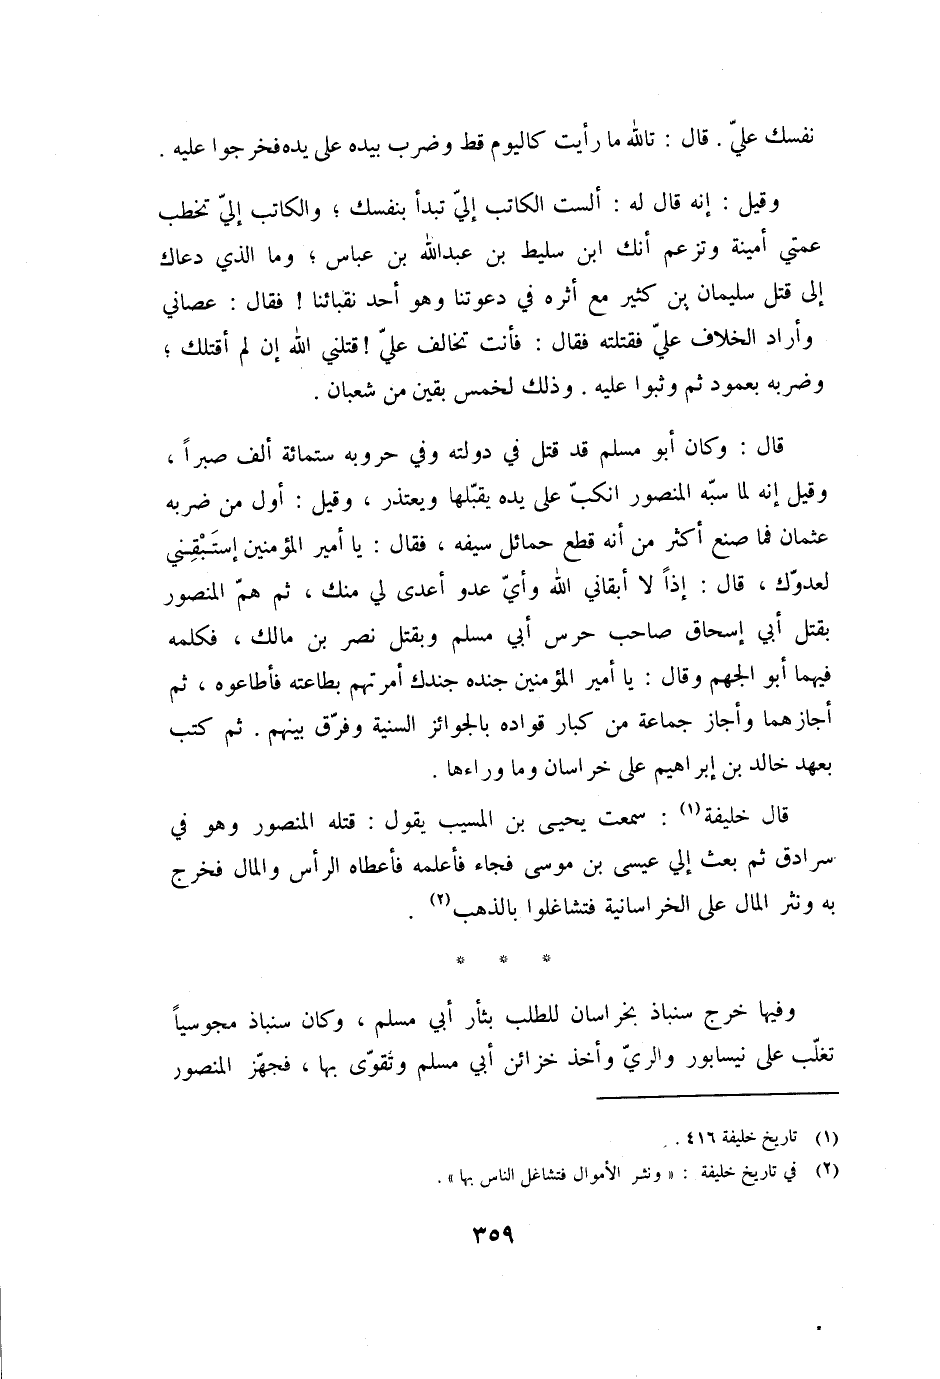 نفسك عليّ . قال : تالله ما رأيت كاليوم قط وضرب بيده على يده فخرجوا عليه .
وقيل : إنه قال له : ألست الكاتب إليّ تبدأ بنفسك ؛ والكاتب إليّ تخطب
عمتي أمينة وتزعم أنك ابن سليط بن عبدالله بن عباس ؛ وما الذي دعاك
إلى قتل سليمان بن كثير مع أثره في دعوتنا وهو أحد نقبائنا ! فقال : عصاني
وأراد الخلاف عليّ فقتلته فقال : فأنت تخالف عليّ ! قتلني الله إن لم أقتلك ؛
وضربه بعمود ثم وثبوا عليه . وذلك لخمس بقين من شعبان .
قال : وكان أبو مسلم قد قتل في دولته وفي حروبه ستمائة ألف صبراً ،
وقيل إنه لما سبّه المنصور انكبّ على يده يقبّلها ويعتذر ، وقيل : أول من ضربه
عثمان فما صنع أكثر من أنه قطع حمائل سيفه ، فقال : يا أمير المؤمنين إستَبْقِني
لعدوّك ، قال : إذاً لا أبقاني الله وأيّ عدو أعدى لي منك ، ثم همّ المنصور
بقتل أبي إسحاق صاحب حرس أبي مسلم وبقتل نصر بن مالك ، فكلمه
فيهما أبو الجهم وقال : يا أمير المؤمنين جنده جندك أمرتهم بطاعته فأطاعوه ، ثم
أجازهما وأجاز جماعة من كبار قواده بالجوائز السنية وفرّق بينهم . ثم كتب
بعهد خالد بن إبراهيم على خراسان وما وراءها .
قال خليفة(١) : سمعت يحيى بن المسيب يقول : قتله المنصور وهو في
سرادق ثم بعث إلي عيسى بن موسى فجاء فأعلمه فأعطاه الرأس والمال فخرج
به ونثر المال على الخراسانية فتشاغلوا بالذهب(٢) .
* * *
وفيها خرج سنباذ بخراسان للطلب بثأر أبي مسلم ، وكان سنباذ مجوسياً
تغلّب على نيسابور والريّ وأخذ خزائن أبي مسلم وتَقوّى بها ، فجهّز المنصور
(١) تاريخ خليفة ٤١٦ .
(٢) في تاريخ خليفة : « ونثر الأموال فتشاغل الناس بها » .
٣٥٩